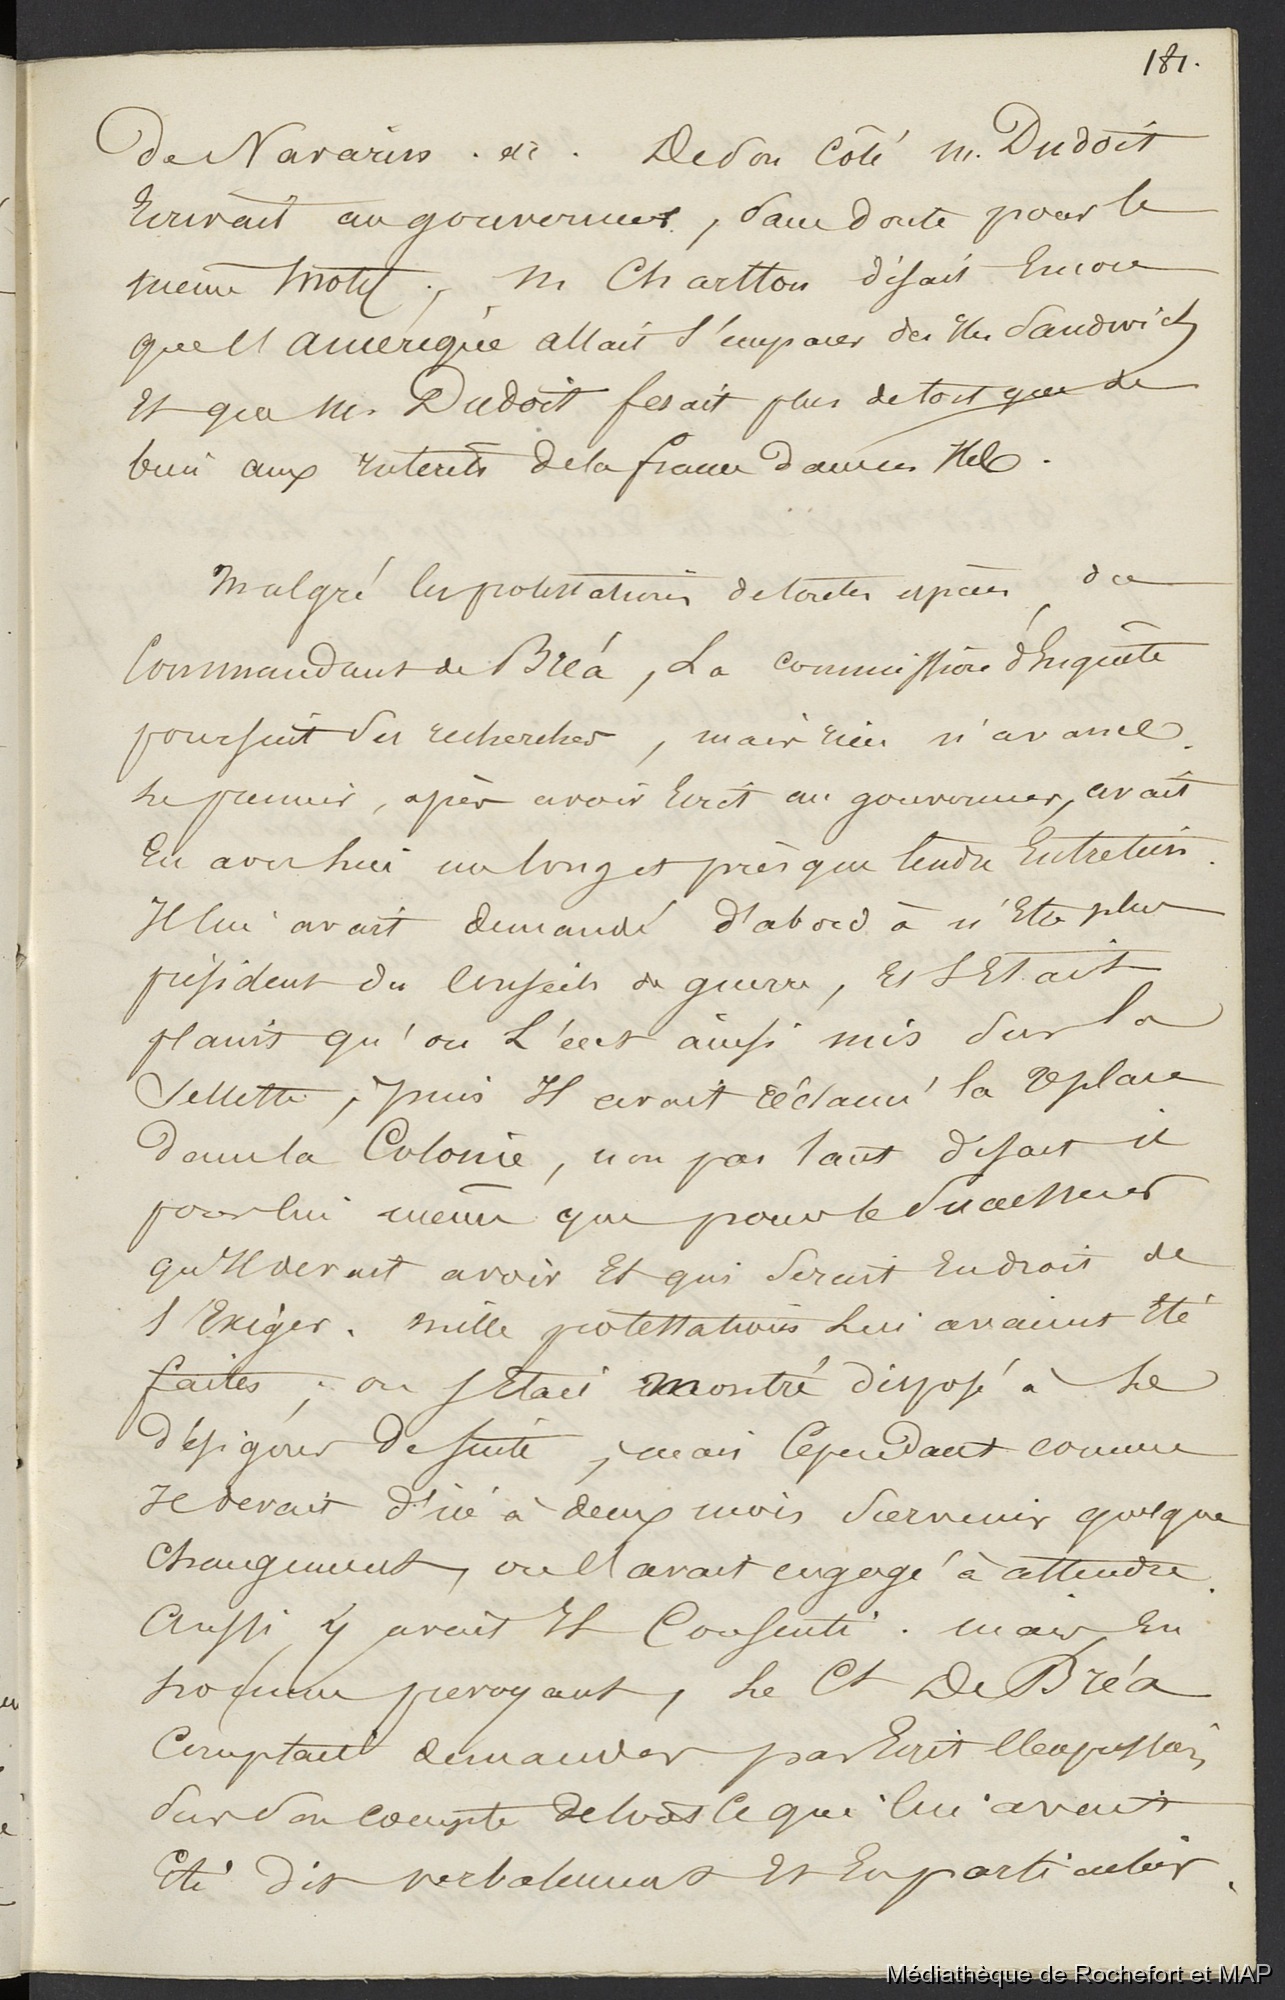 181.
de Navarin . &c . De son Côté m. Dudoit
Ecrivait au gouverneur, sans doute pour le
meme Motif ; M Chartton disait Encore
que l'amérique allait s'emparer des Iles Sandwich
Et que M. Dudoit fesait plus de tort que de
bien aux interêts de la france dans ces Iles .
Malgré les protestations de toutes espèces, du
Commandant de Bréa, La commission d'Enquête
poursuit ses recherches, mais rien n'avance.
Le premier, après avoir Ecrit au gouverneur, avait
Eu avec lui un long et presque tendre Entretien.
Il lui avait demandé d'abord à n'Etre plus
président du Conseil de guerre, Et S'Etait
plaint qu'on L'eut ainsi mis sur la
Sellette, puis Il avait réclamé la 1re place
dans la Colonie, non pas tant disait il
pour lui même que pour le Successeur
qu'Il devait avoir Et qui Serait En droit de
l'Exiger. Mille protestations Lui avaient Eté
faites ; on s'Etait montré disposé à Le
désigner de suite ; mais Cependant comme
Il devait d'ici à deux mois survenir quelque
Changement, on l'avait engagé à attendre.
Aussi y avait Il Consenti . mais En
homme prévoyant, Le Ct De Bréa
Comptait demander par Ecrit l'expression,
Sur Son compte de tout ce qui lui avait
Eté dit verbalement Et En particulier.
Médiathèque de Rochefort et MAP